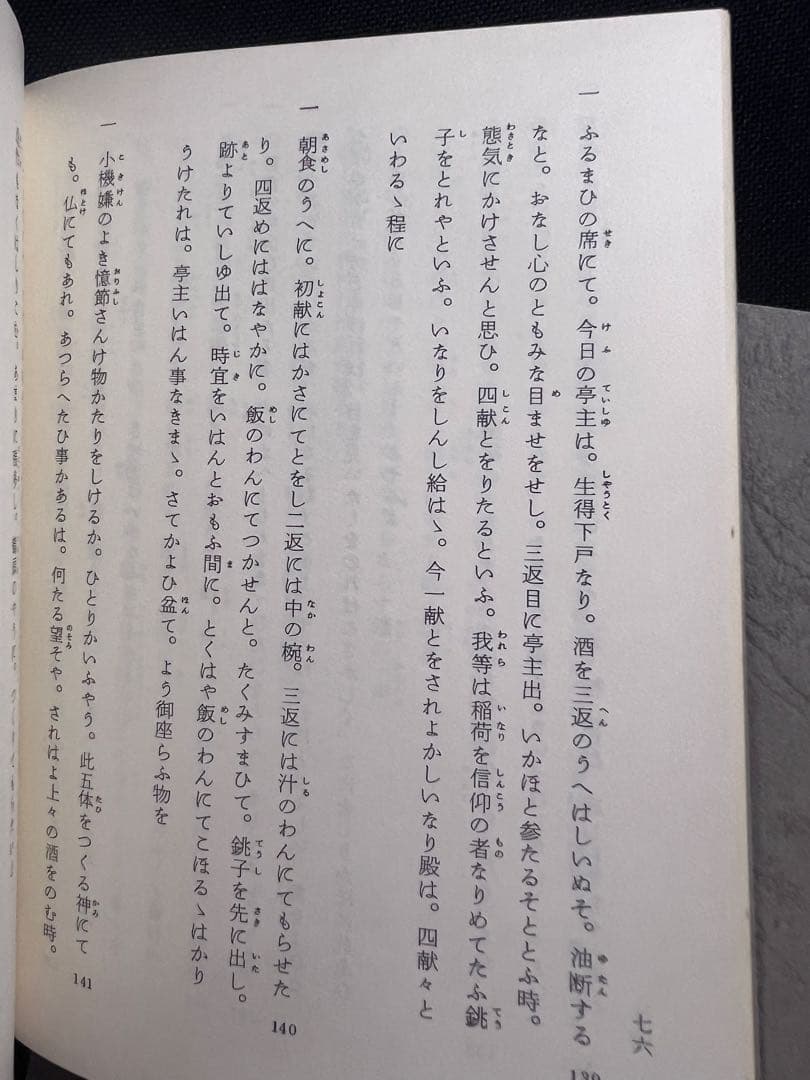 一　ふるまひの席にて。今日の亭主は。生得下戸なり。酒を三返のうへはしいぬそ。油断する
なと。おなし心のともみな目ませをせし。三返目に亭主出。いかほと参たるそととふ時。
態気にかけさせんと思ひ。四献とをりたるといふ。我等は稲荷を信仰の者なりめてたふ銚
子をとれやといふ。いなりをしんし給はゝ。今一献とをされよかしいなり殿は。四献々と
いわるゝ程に
一　朝食のうへに。初献にはかさにてとをし二返には中の椀。三返には汁のわんにてもらせた
り。四返めにははなやかに。飯のわんにてつかせんと。たくみすまひて。銚子を先に出し。
跡よりていしゆ出て。時宜をいはんとおもふ間に。とくはや飯のわんにてこほるゝはかり
うけたれは。亭主いはん事なきまゝ。さてかよひ盆て。よう御座らふ物を
140
一　小機嫌のよき憶節さんけ物かたりをしけるか。ひとりかいふやう。此五体をつくる神にて
も。仏にてもあれ。あつらへたひ事かあるは。何たる望そや。されはよ上々の酒をのむ時。
141
七六